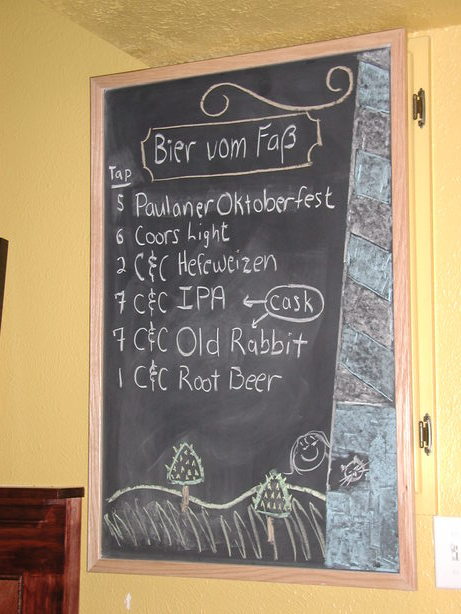 Bier vom Faß
Tap
5 Paulaner Oktoberfest
6 Coors Light
2 C&C Hefeweizen
7 C&C IPA cask
7 C&C Old Rabbit
1 C&C Root Beer